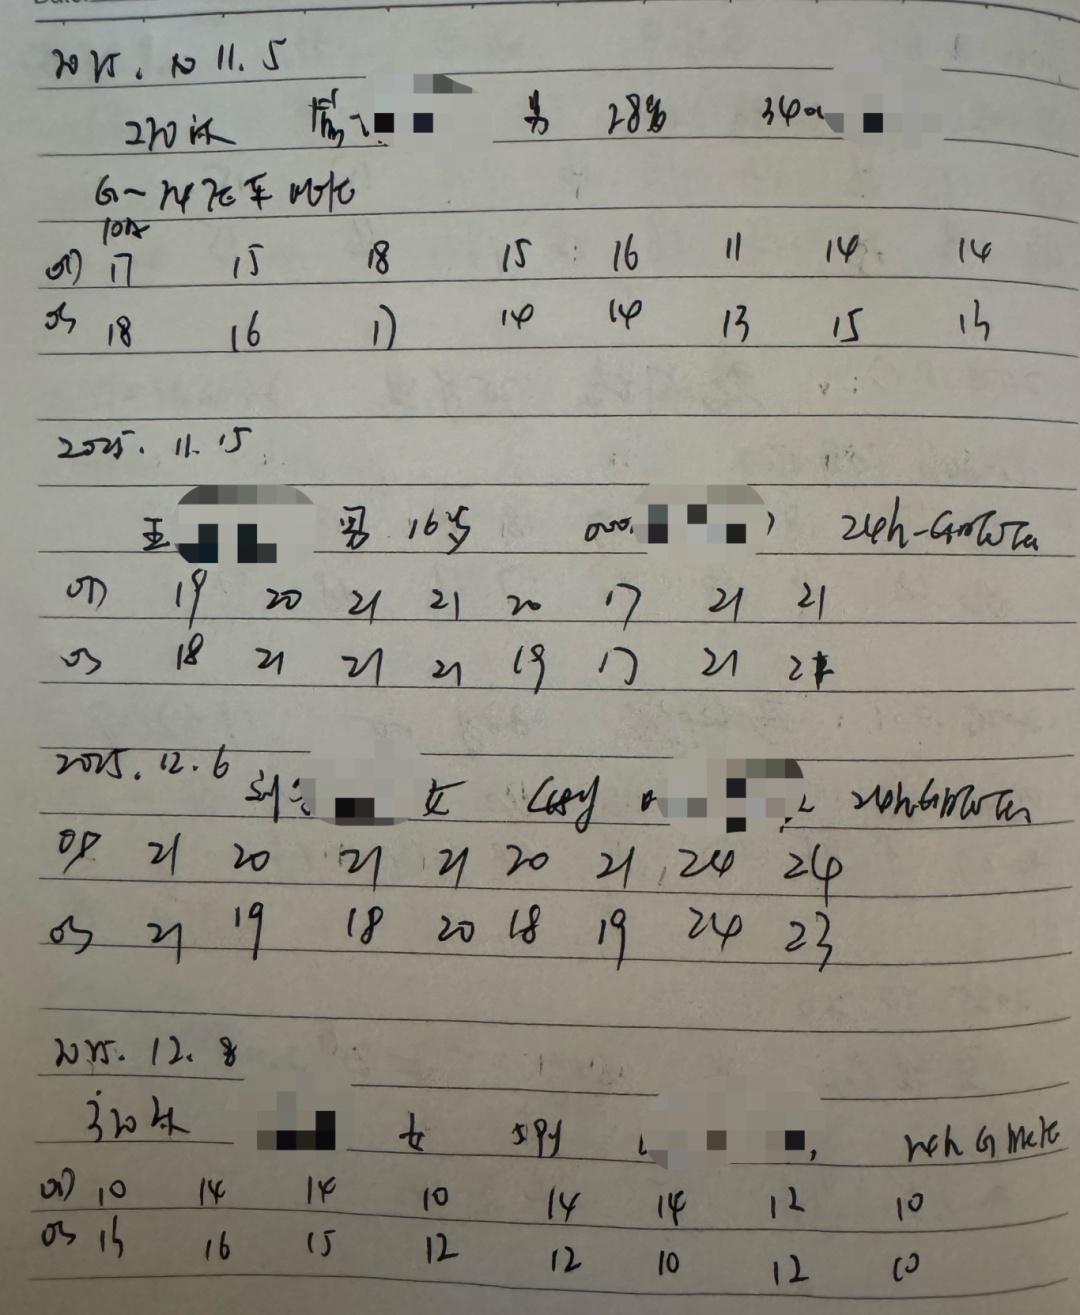 2025. 11.5
270床 男 28岁 340
10点
OD 17 15 18 15 16 11 14 14
OS 18 16 17 14 14 13 15 15
2025. 11. 15
王 男 16岁 000
OD 19 20 21 21 20 17 21 21
OS 18 21 21 21 19 17 21 21
2025. 12. 6
刘 女 68y
OD 21 20 21 21 20 21 24 24
OS 21 19 18 20 18 19 24 23
2025. 12. 8
床 女 59y
OD 10 14 14 10 14 14 12 10
OS 15 16 15 12 12 10 12 10